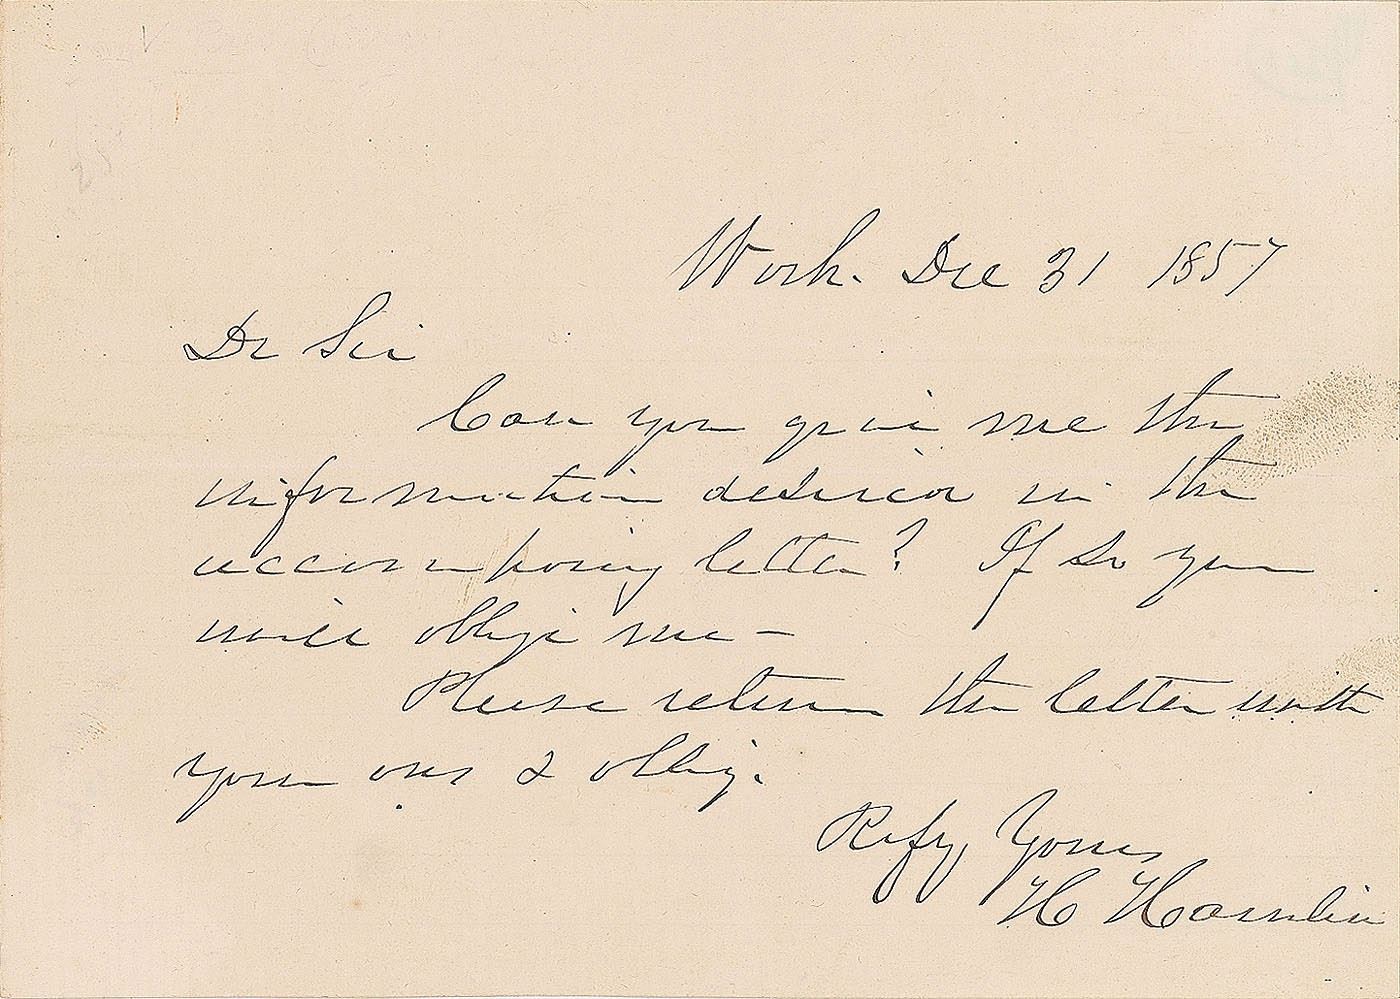 Wash. Dec 31 1857
Dr Sir
Can you give me the
information desired in the
accompaning letter? If so you
will oblige me –
Please return the letter with
your ans & oblig.
Resfy, Yours
H Hamlin